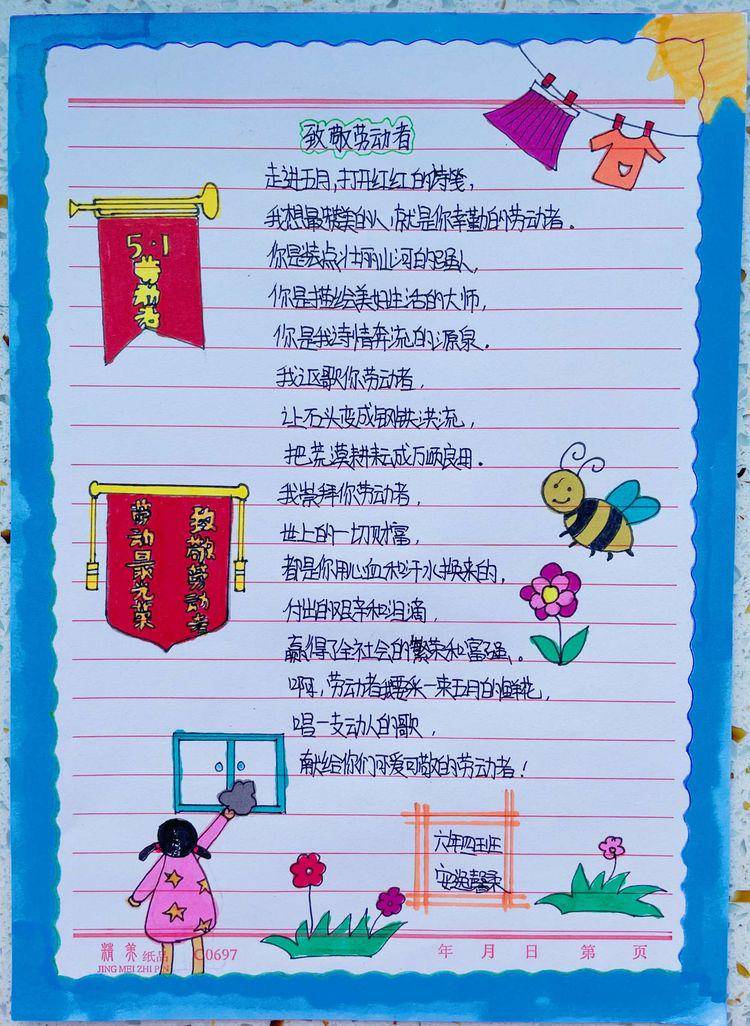 致敬劳动者
走进五月,打开红红的诗笺,
我想最美的人,就是你辛勤的劳动者。
你是装点壮丽山河的强人,
你是描绘美好生活的大师,
你是我诗情奔流的源泉。
我讴歌你劳动者,
让石头变成钢铁洪流,
把荒漠耕耘成万顷良田。
我崇拜你劳动者,
世上的一切财富,
都是你用心血和汗水换来的,
付出的艰辛和泪滴,
赢得了全社会的繁荣和富强。
啊,劳动者我要采一束五月的鲜花,
唱一支动人的歌,
献给你们可爱可敬的劳动者!
5·1
劳动者
致敬劳动者
劳动最光荣
六年四班
精美纸品 C0697
JING MEI ZHI PIN
年 月 日 第 页